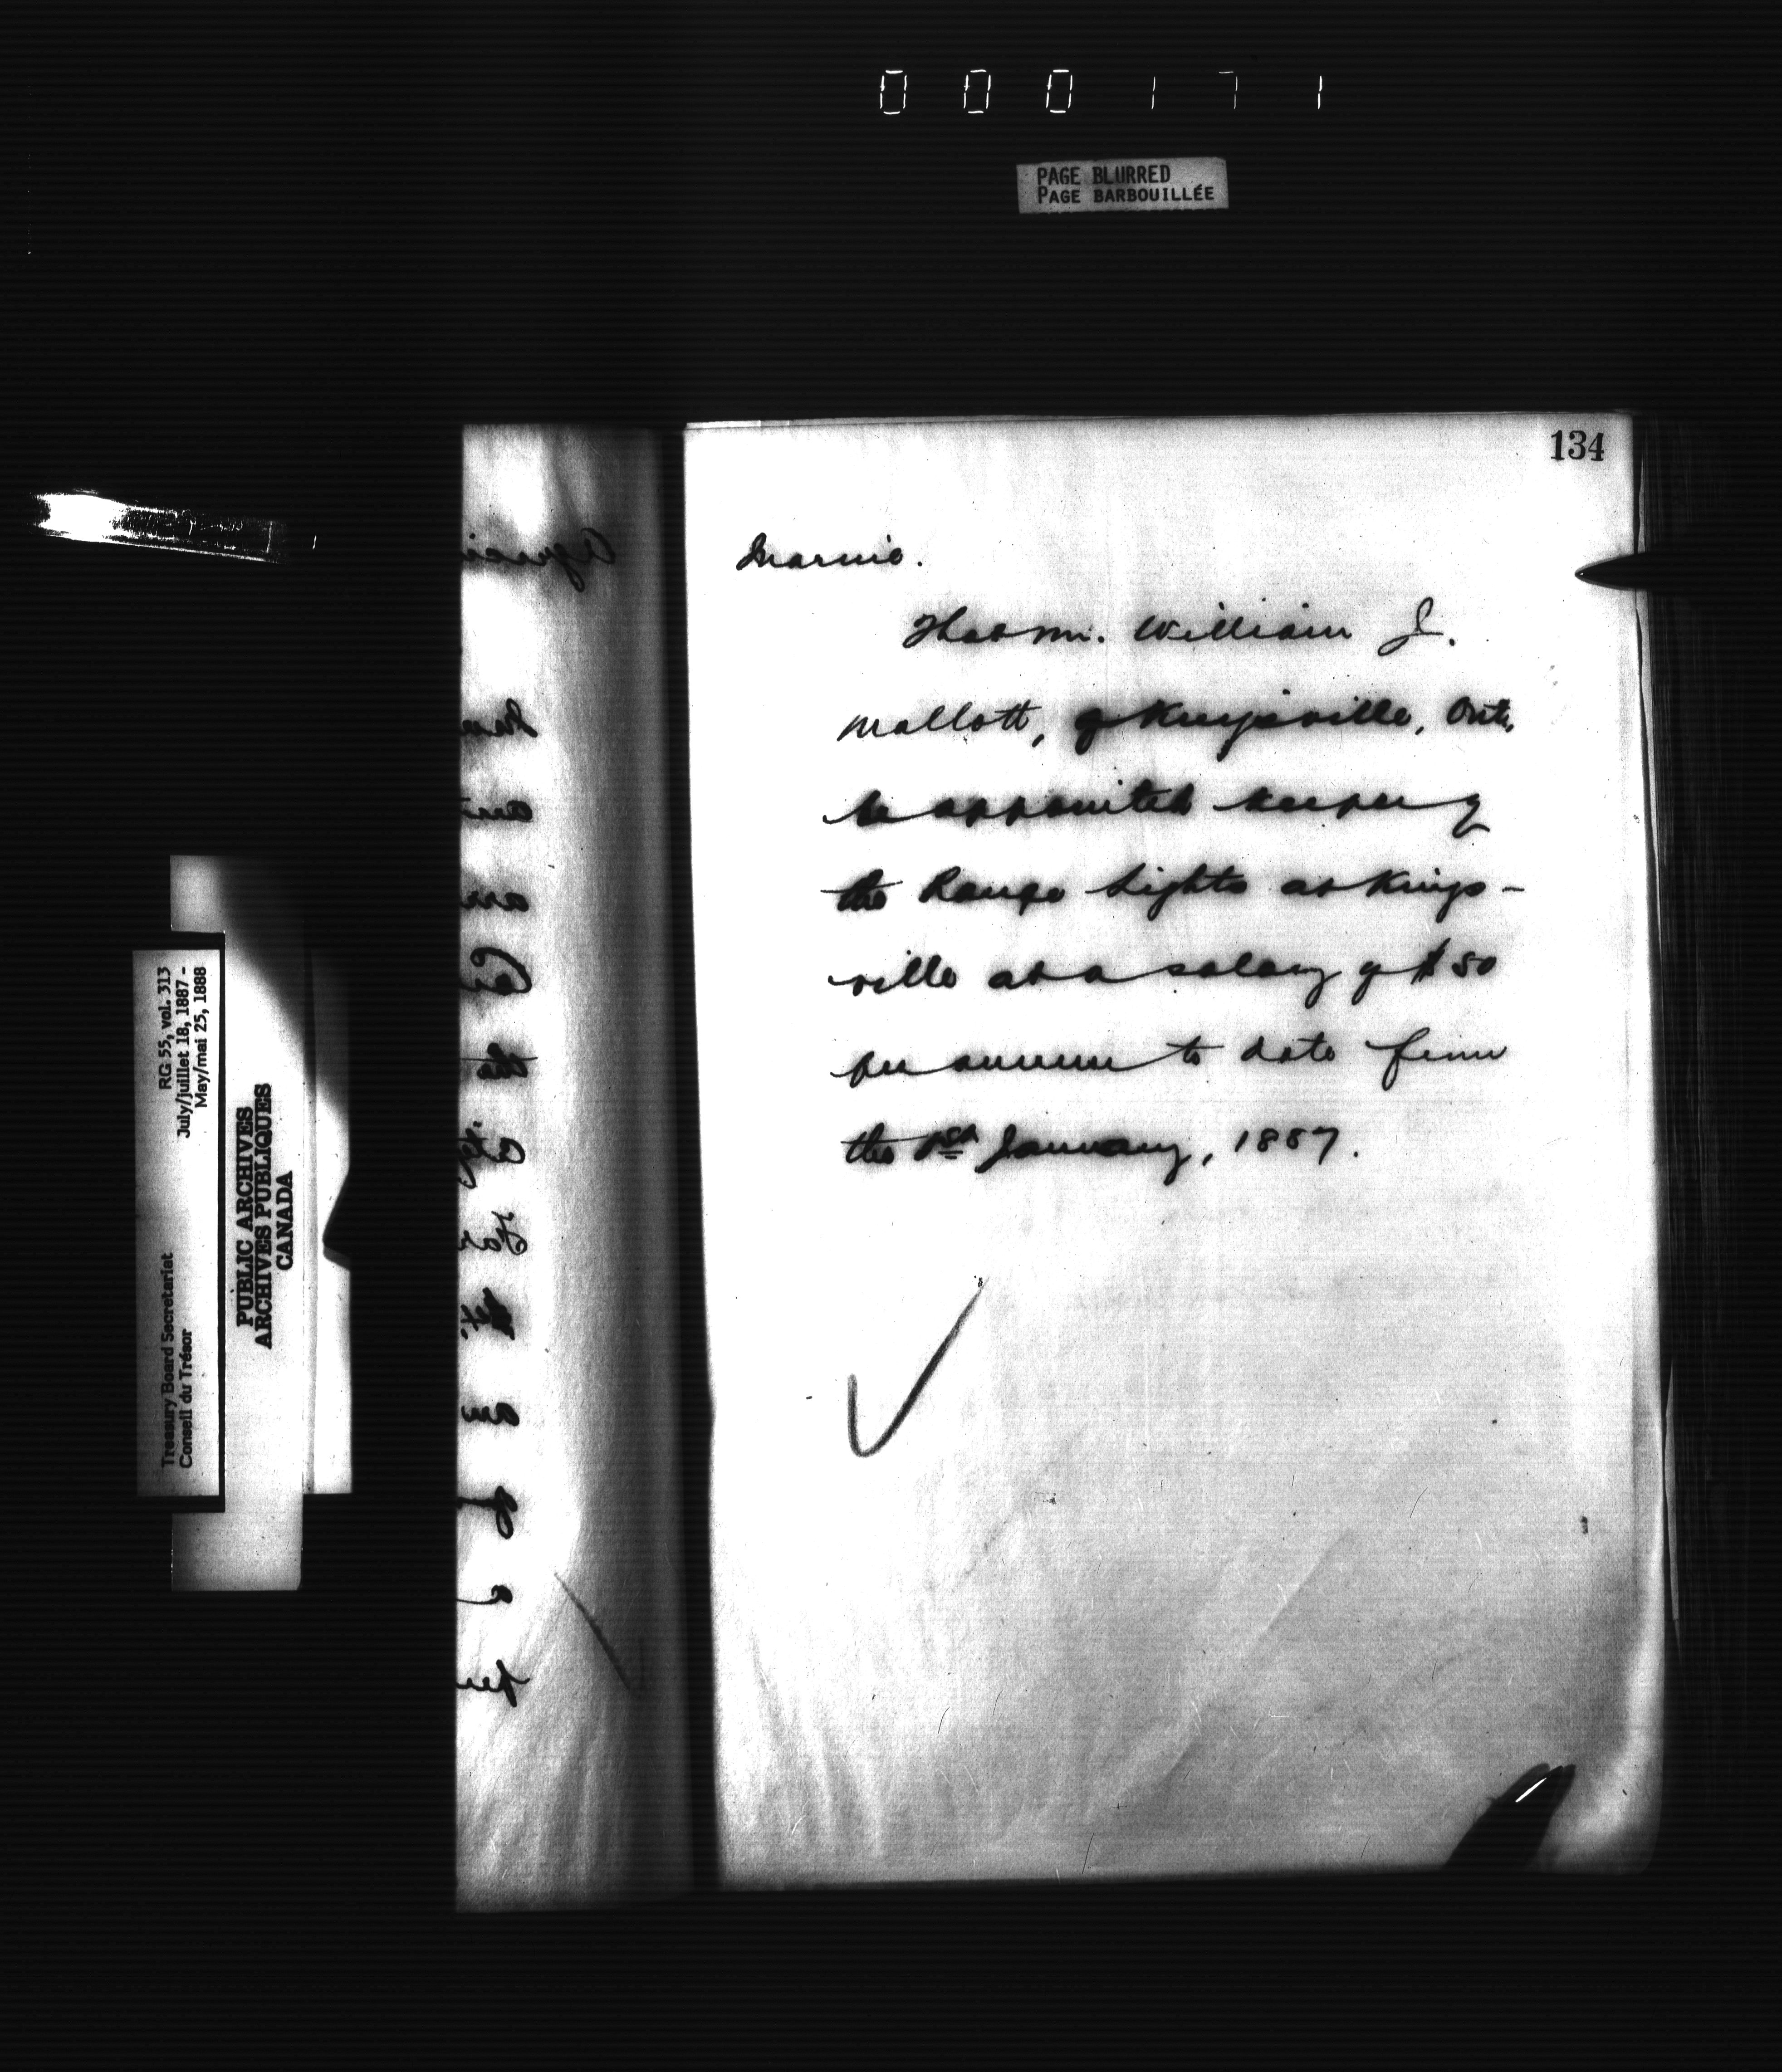 000171
PAGE BLURRED
PAGE BARBOUILLÉE
134
Marine.
That Mr. William J.
Mallott, of Kingsville, Ont.
be appointed keeper of
the Range Lights at Kings-
ville at a salary of $50
per annum to date from
the 1st January, 1887.
RG 55, vol. 313
July/juillet 18, 1887 -
May/mai 25, 1888
Treasury Board Secretariat
Conseil du Trésor
PUBLIC ARCHIVES
ARCHIVES PUBLIQUES
CANADA